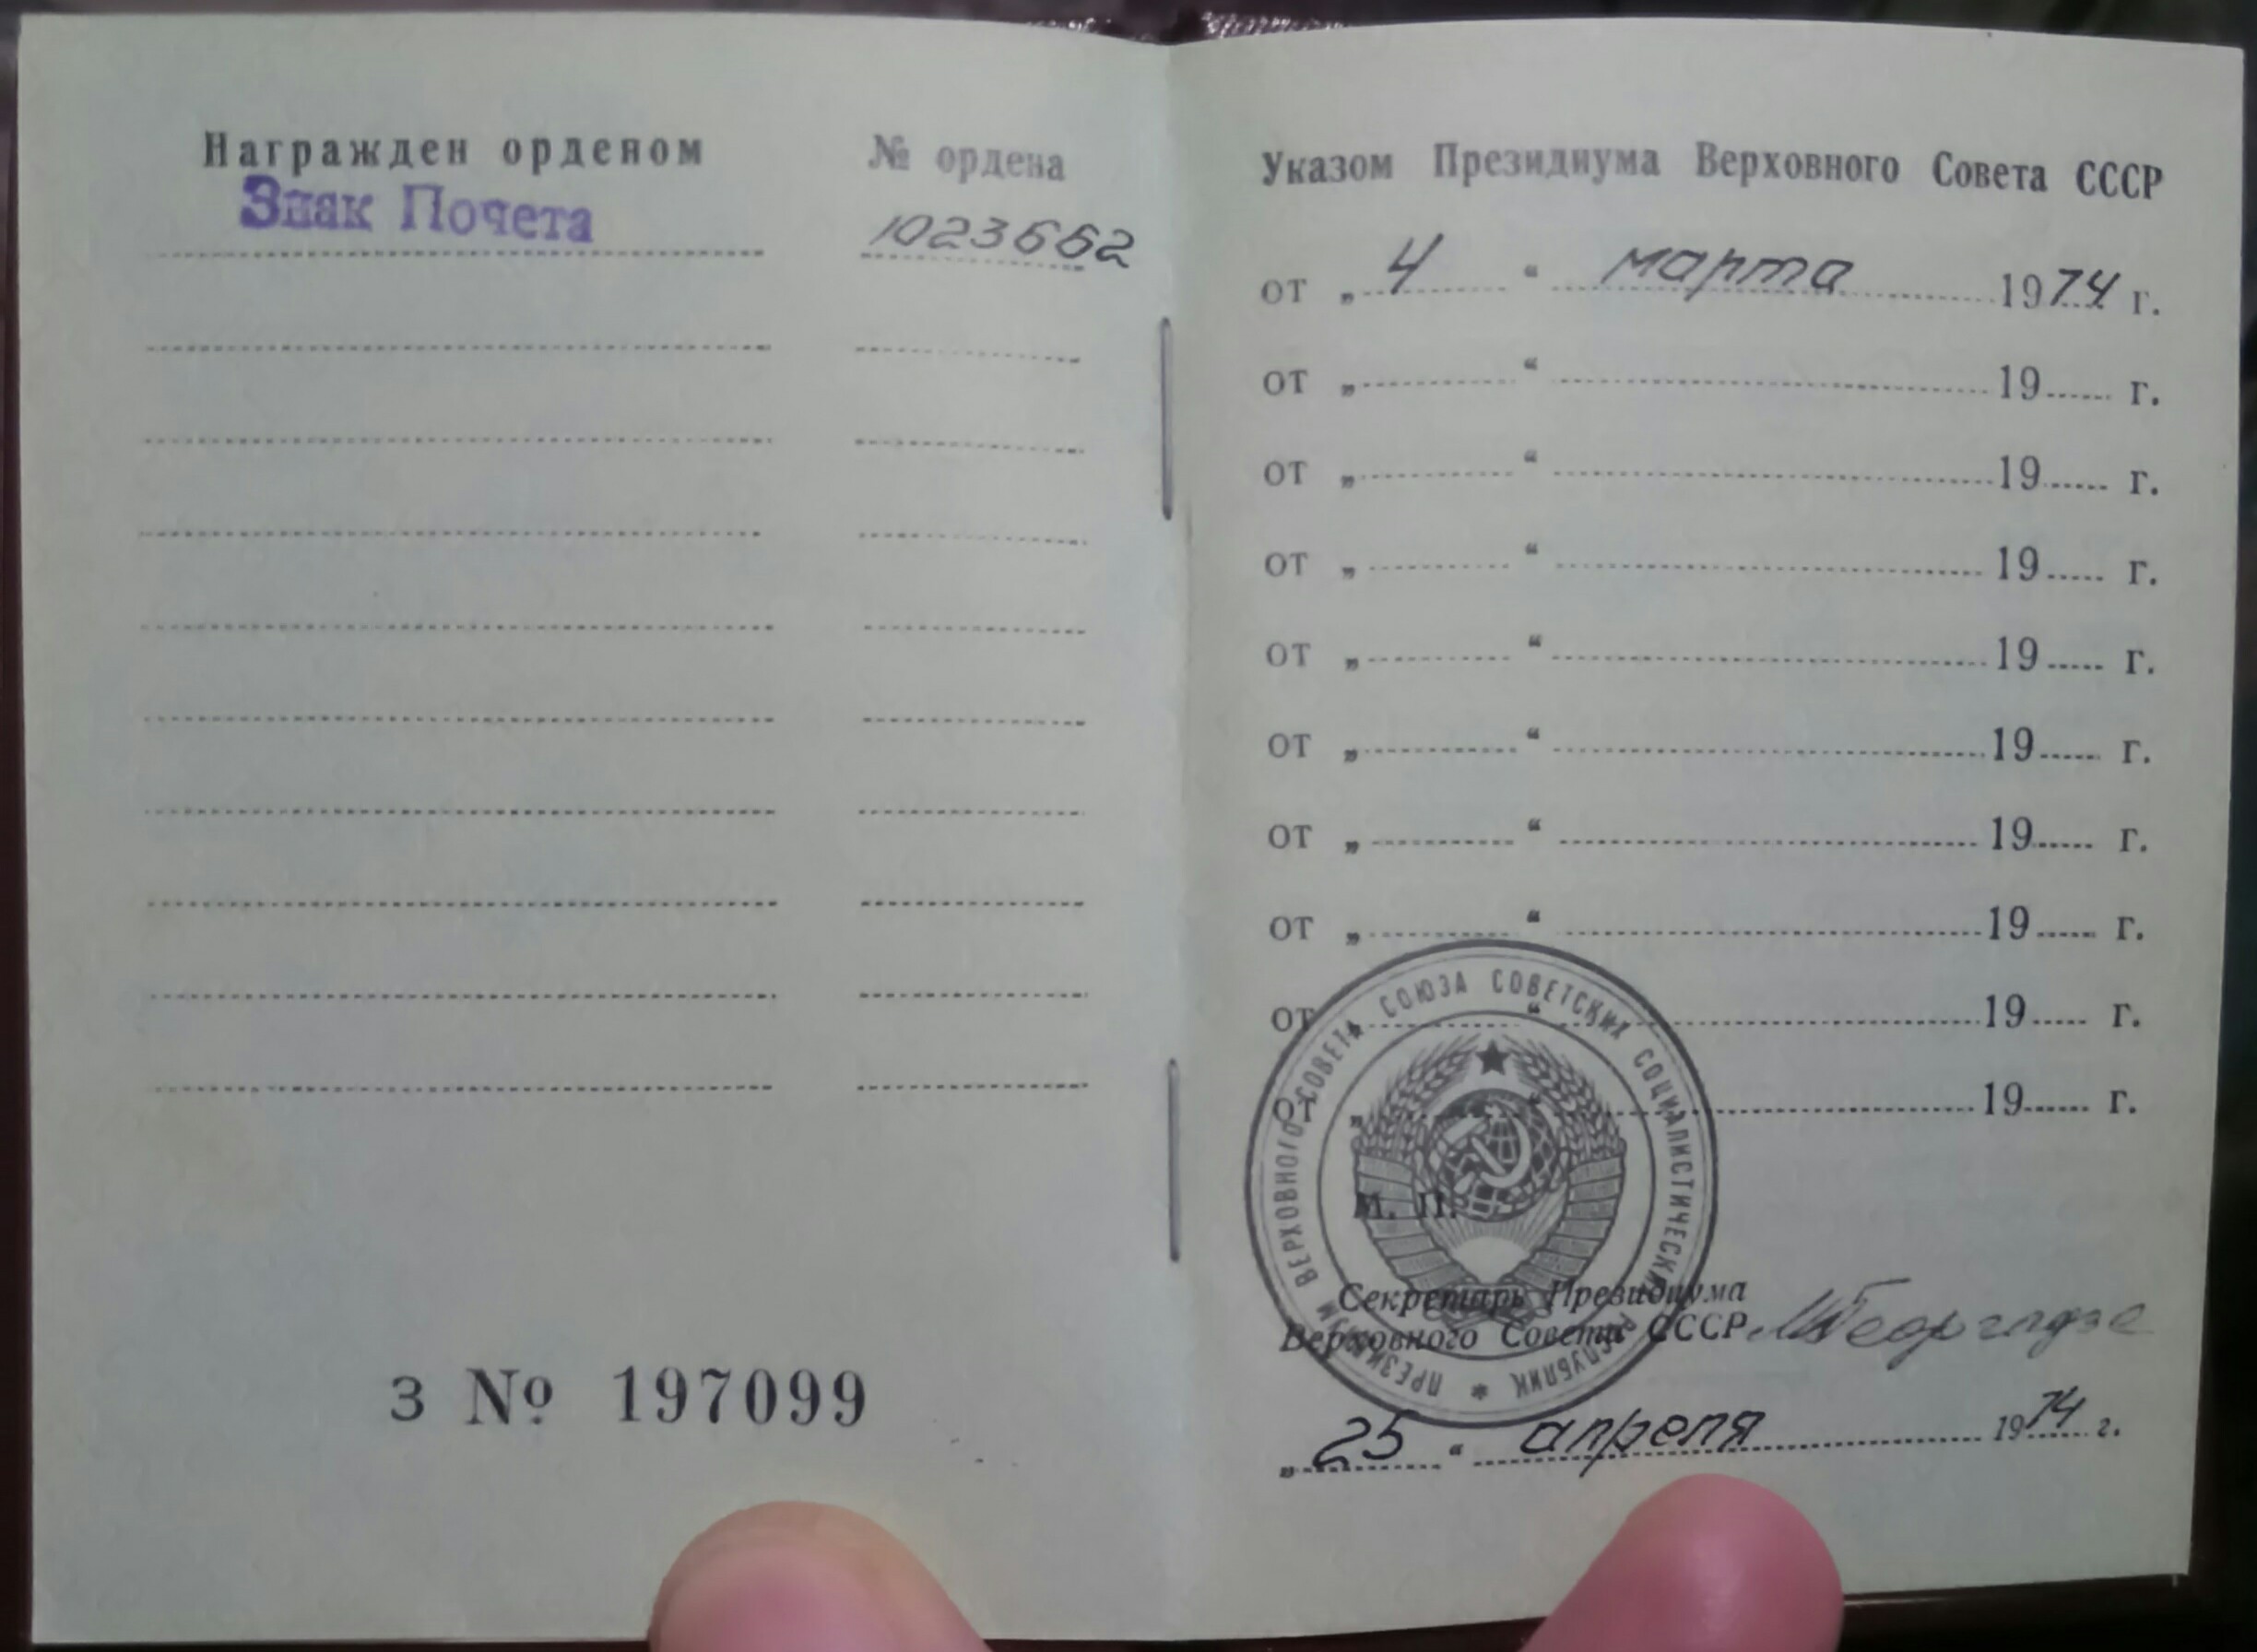 Награжден орденом
№ ордена
Знак Почета
1023662
3 № 197099
Указом Президиума Верховного Совета СССР
от „ 4 “ марта 1974 г.
от „ “ 19 г.
от „ “ 19 г.
от „ “ 19 г.
от „ “ 19 г.
от „ “ 19 г.
от „ “ 19 г.
от „ “ 19 г.
от „ “ 19 г.
от „ “ 19 г.
ПРЕЗИДИУМ ВЕРХОВНОГО СОВЕТА СОЮЗА СОВЕТСКИХ СОЦИАЛИСТИЧЕСКИХ РЕСПУБЛИК *
М. П.
Секретарь Президиума
Верховного Совета СССР МГеоргадзе
„ 25 “ апреля 1974 г.